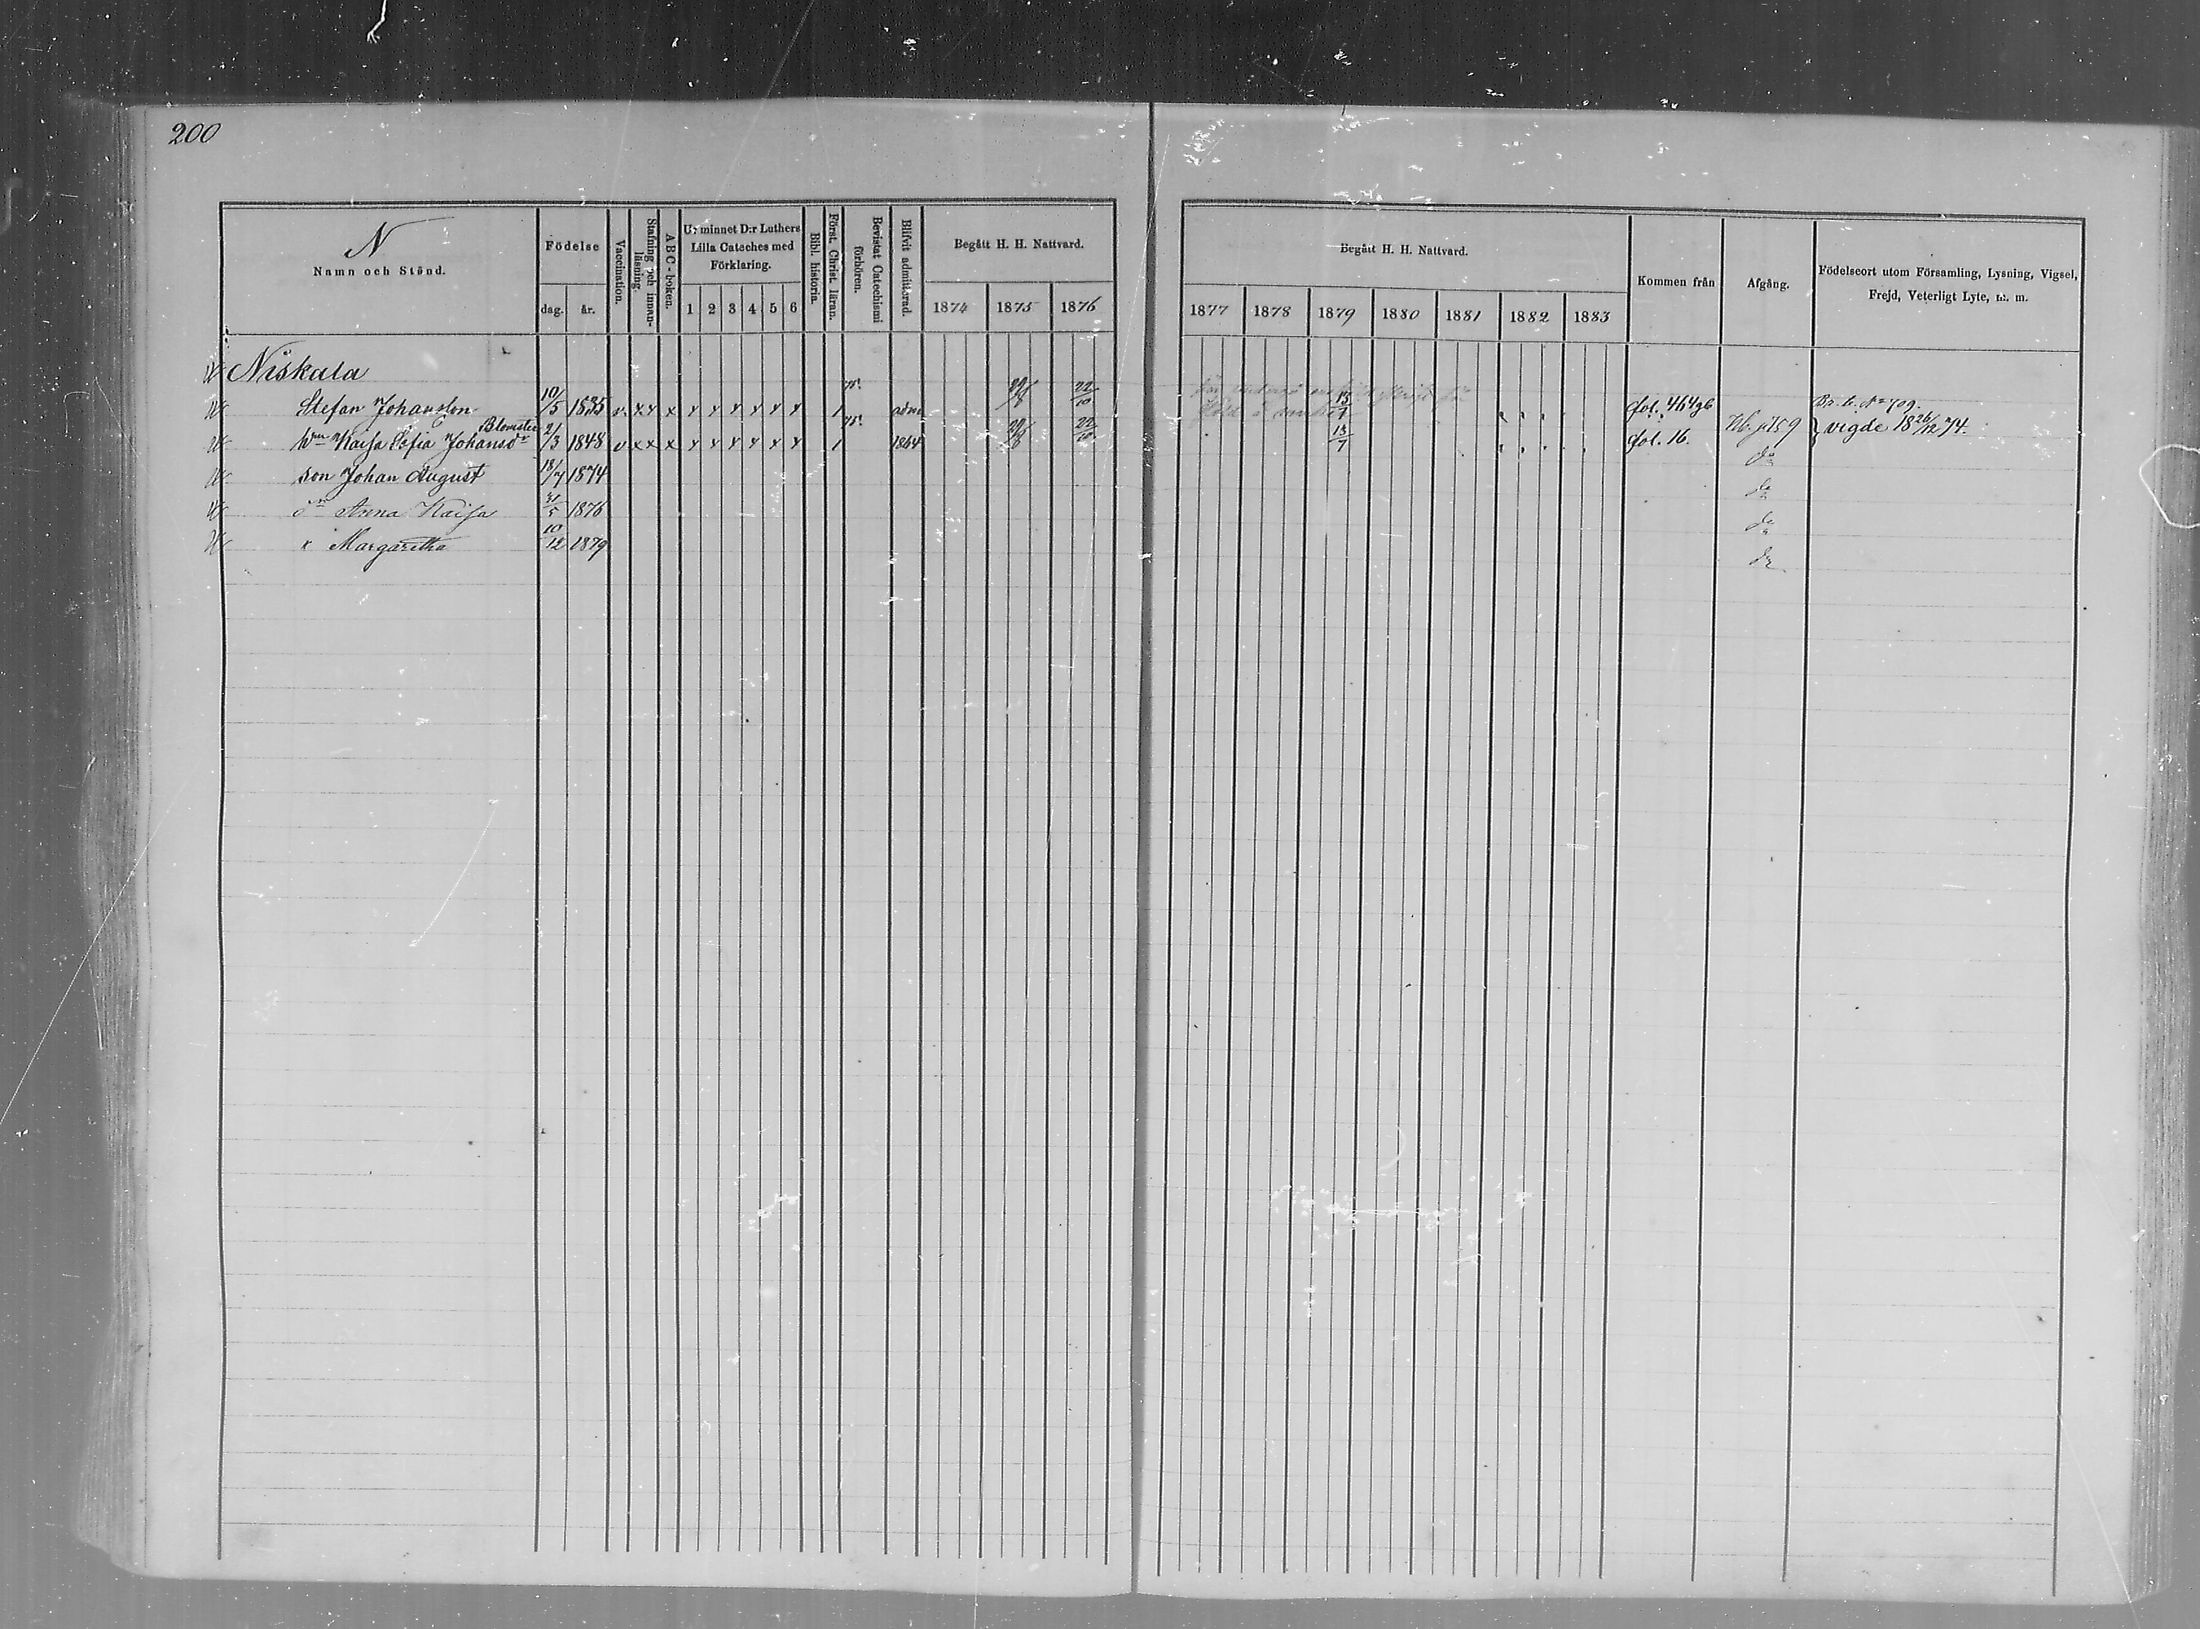 200
N
Namn och Stånd.
Födelse
dag. år.
Vaccination.
Stafning och innan-
läsning.
A B C-boken.
Ur minnet D:r Luthers
Lilla Cateches med
Förklaring.
1 2 3 4 5 6
Bibl. historia.
Först. Christ. läran.
Bevistat Catechismi
förhören.
Blifvit admitterad.
Begått H. H. Nattvard.
1874 1875 1876
Begått H. H. Nattvard.
1877 1878 1879 1880 1881 1882 1883
Kommen från
Afgång.
Födelseort utom Församling, Lysning, Vigsel,
Frejd, Veterligt Lyte, m. m.
Niskala
Stefan Johansson 10/5 1835 v. x x x x x x x x x 1 adm 22/10 13/7 fol. 464 Br. b. No 709.
Blomster
Kaisa Sofia Johansdr 21/3 1848 v x x x x x x x x x 1 1864 22/10 13/7 fol. 16. p 159 vigde 18 26/12 74.
son Johan August 18/7 1874 do
dr Anna Kaisa 31/5 1876 do
" Margaretha 10/12 1879 do
do